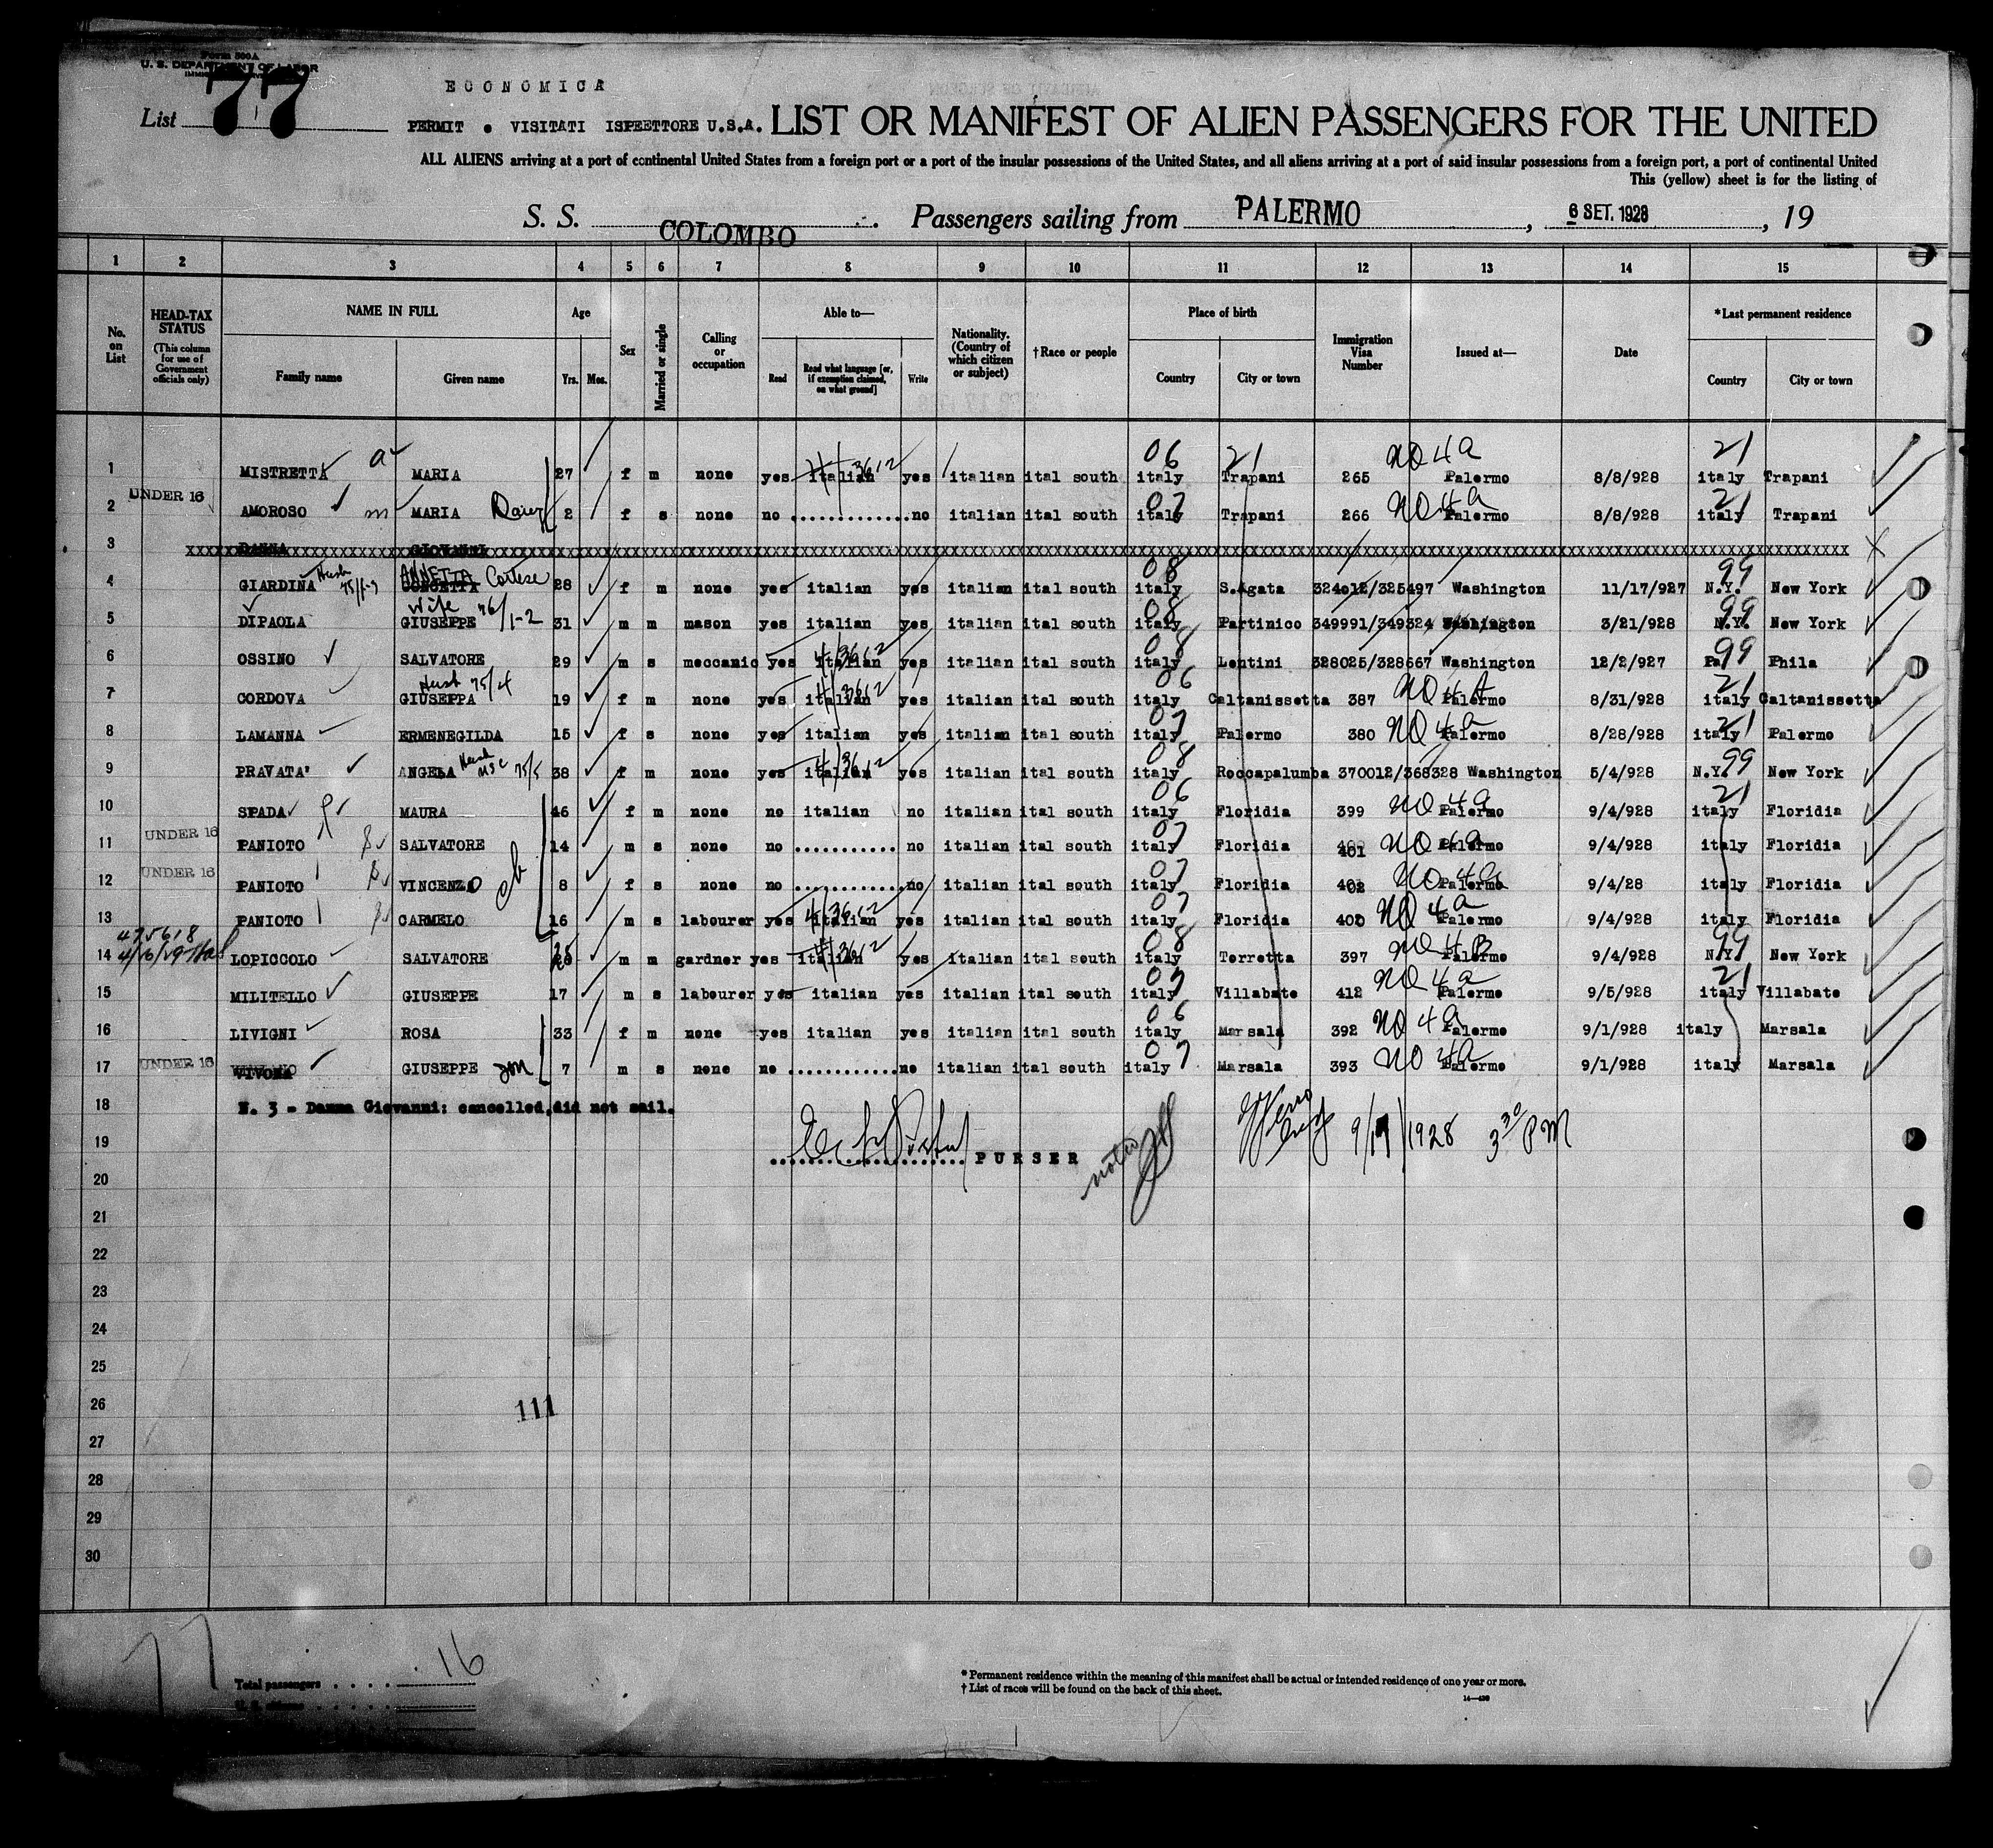 Form 500A
U. S. DEPARTMENT OF LABOR
List 77
ECONOMICA
PERMIT • VISITATI ISPEETTORE U.S.A. LIST OR MANIFEST OF ALIEN PASSENGERS FOR THE UNITED
ALL ALIENS arriving at a port of continental United States from a foreign port or a port of the insular possessions of the United States, and all aliens arriving at a port of said insular possessions from a foreign port, a port of continental United
This (yellow) sheet is for the listing of
S. S. COLOMBO Passengers sailing from PALERMO, 6 SET. 1928, 19
1 2 3 4 5 6 7 8 9 10 11 12 13 14 15
No. on List
HEAD-TAX STATUS (This column for use of Government officials only)
NAME IN FULL Family name Given name
Age Yrs. Mos.
Sex
Married or single
Calling or occupation
Able to— Read Read what language [or, if exemption claimed, on what ground] Write
Nationality. (Country of which citizen or subject)
†Race or people
Place of birth Country City or town
Immigration Visa Number
Issued at—
Date
*Last permanent residence Country City or town
06 21 NO 4a 21
1 MISTRETTA MARIA 27 f m none yes italian yes italian ital south italy Trapani 265 Palermo 8/8/928 italy Trapani
UNDER 16 07 NO 4a 21
2 AMOROSO m MARIA 2 f s none no ............ no italian ital south italy Trapani 266 Palermo 8/8/928 italy Trapani
3 DANNA GIOVANNI
Husb 75/1-9 ANNETTA Cortese 08 99
4 GIARDINA CONCETTA 28 f m none yes italian yes italian ital south italy S.Agata 324012/325497 Washington 11/17/927 N.Y. New York
Wife 76/1-2 08 99
5 DIPAOLA GIUSEPPE 31 m m mason yes italian yes italian ital south italy Partinico 349991/349324 Washington 3/21/928 N.Y. New York
08 4/3612 99
6 OSSINO SALVATORE 29 m s meccanic yes italian yes italian ital south italy Lentini 328025/328667 Washington 12/2/927 Pa. Phila
Husb 75/4 4/3612 06 NO 4A 21
7 CORDOVA GIUSEPPA 19 f m none yes italian yes italian ital south italy Caltanissetta 387 Palermo 8/31/928 italy Caltanissetta
07 NO 4a 21
8 LAMANNA ERMENEGILDA 15 f s none yes italian yes italian ital south italy Palermo 380 Palermo 8/28/928 italy Palermo
Husb USC 75/5 4/3612 08 99
9 PRAVATA' ANGELA 38 f m none yes italian yes italian ital south italy Roccapalumba 370012/368328 Washington 5/4/928 N.Y. New York
06 NO 4a 21
10 SPADA MAURA 46 f m none no italian no italian ital south italy Floridia 399 Palermo 9/4/928 italy Floridia
UNDER 16 07 NO 4a
11 PANIOTO SALVATORE 14 m s none no ........... no italian ital south italy Floridia 401 Palermo 9/4/928 italy Floridia
UNDER 16 07 NO 4a
12 PANIOTO VINCENZO 8 f s none no ............ no italian ital south italy Floridia 402 Palermo 9/4/28 italy Floridia
4/3612 07 NO 4a
13 PANIOTO CARMELO 16 m s labourer yes italian yes italian ital south italy Floridia 400 Palermo 9/4/928 italy Floridia
475618 08 NO 4B 99
14 LOPICCOLO SALVATORE m m gardner yes italian yes italian ital south italy Terretta 397 Palermo 9/4/928 N.Y. New York
07 NO 4a 21
15 MILITELLO GIUSEPPE 17 m s labourer yes italian yes italian ital south italy Villabate 412 Palermo 9/5/928 italy Villabate
06 NO 4a
16 LIVIGNI ROSA 33 f m none yes italian yes italian ital south italy Marsala 392 Palermo 9/1/928 italy Marsala
UNDER 16 07 NO 4a
17 VIVONA GIUSEPPE 7 m s none no ............ no italian ital south italy Marsala 393 Palermo 9/1/928 italy Marsala
18 N. 3 - Danna Giovanni: cancelled, did not sail.
19 9/17/1928 3 30 PM
.................... PURSER
20
21
22
23
24
25
26 111
27
28
29
30
77
Total passengers . . . . 16
U. S. citizens . . . . .
* Permanent residence within the meaning of this manifest shall be actual or intended residence of one year or more.
† List of races will be found on the back of this sheet.
14—430